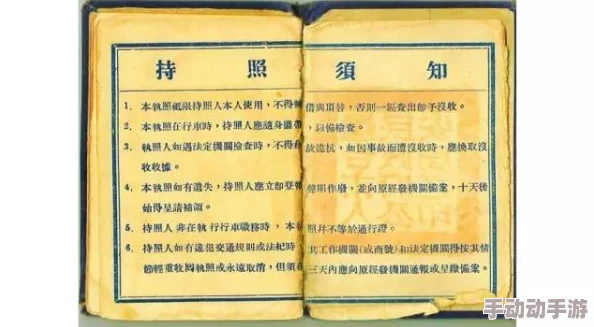 持照須知
1. 本執照祇限持照人本人使用,不得借與頂替,否則一經查出卽予沒收。
2. 本執照在行車時,持照人應隨身攜帶,以備檢查。
3. 執照人如遇法定機關檢查時,不得故違抗,如因事故而遭沒收時,應換取沒
收收據。
4. 本執照如有遺失,持照人應立卽登報聲明作廢,並向原經發機關備案,十天後
始得呈請補領。
5. 持照人非在執行行車職務時,本照幷不等於通行證。
6. 持照人如有違犯交通規則或法紀時,其工作機關(或商號)和法定機關得按其情
節輕重收囘執照或永遠取消,但須在三天內應向原經發機關通報或呈繳備案。
手动动手游